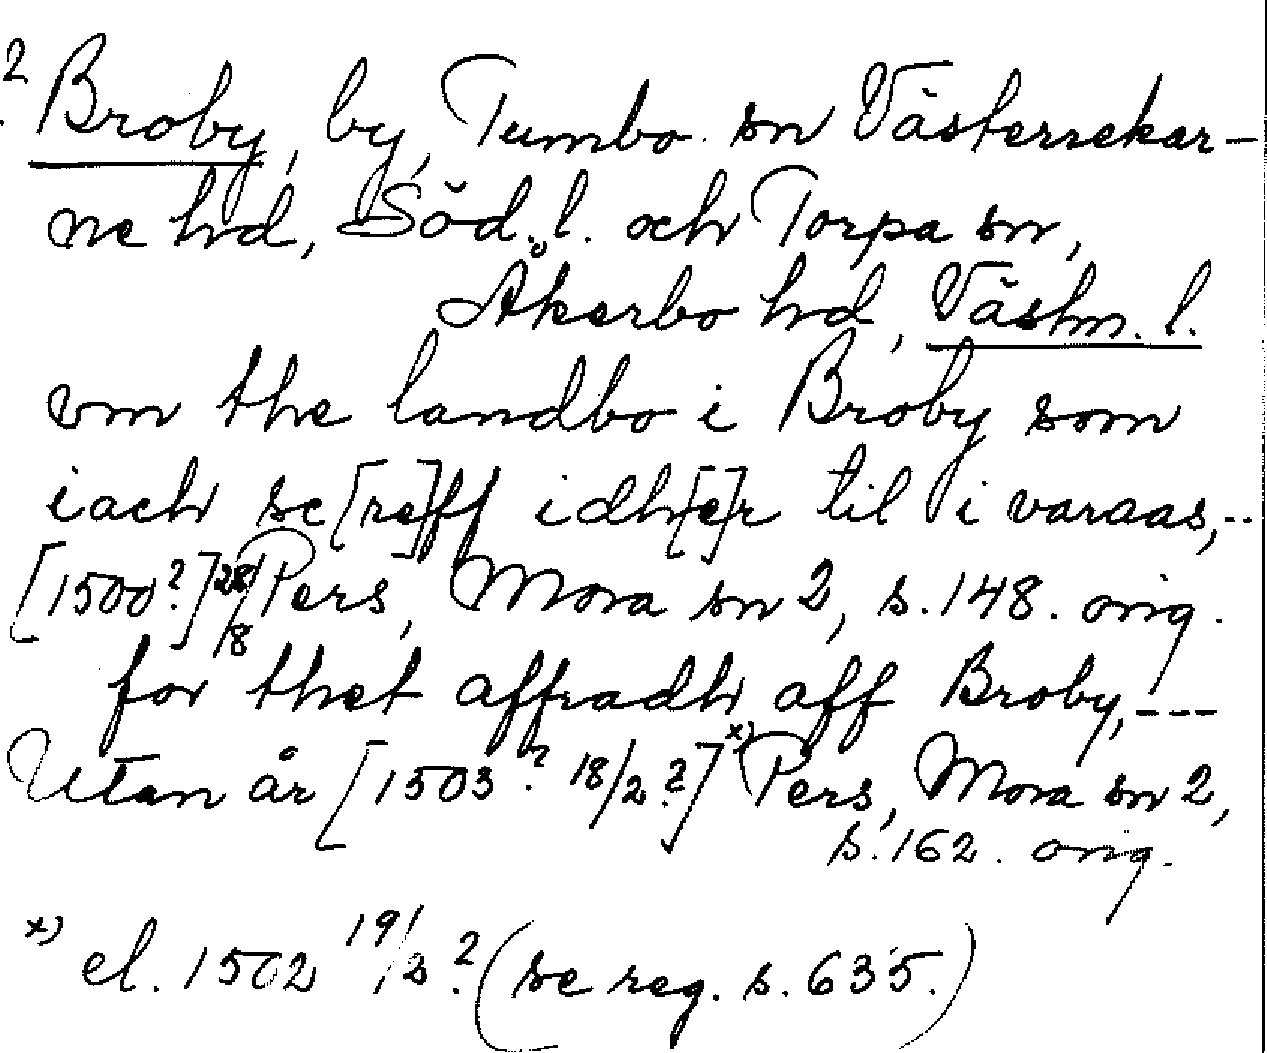 2 Broby, by, Tumbo sn Västerrekar-
ne hd, Söd. l. och Torpa sn,
Åkerbo hd, Västm. l.
vm the landbo i Broby som
iach sc[re]ff idh[e]r til i varaas,--
[1500?] 28/8 Pers, Mora sn 2, s. 148. orig.
for thet affradh aff Broby,---
Utan år [1503? 18/2?] x) Pers, Mora sn 2,
s. 162. orig.
x) el. 1502 19/2? (se reg. s. 635.)